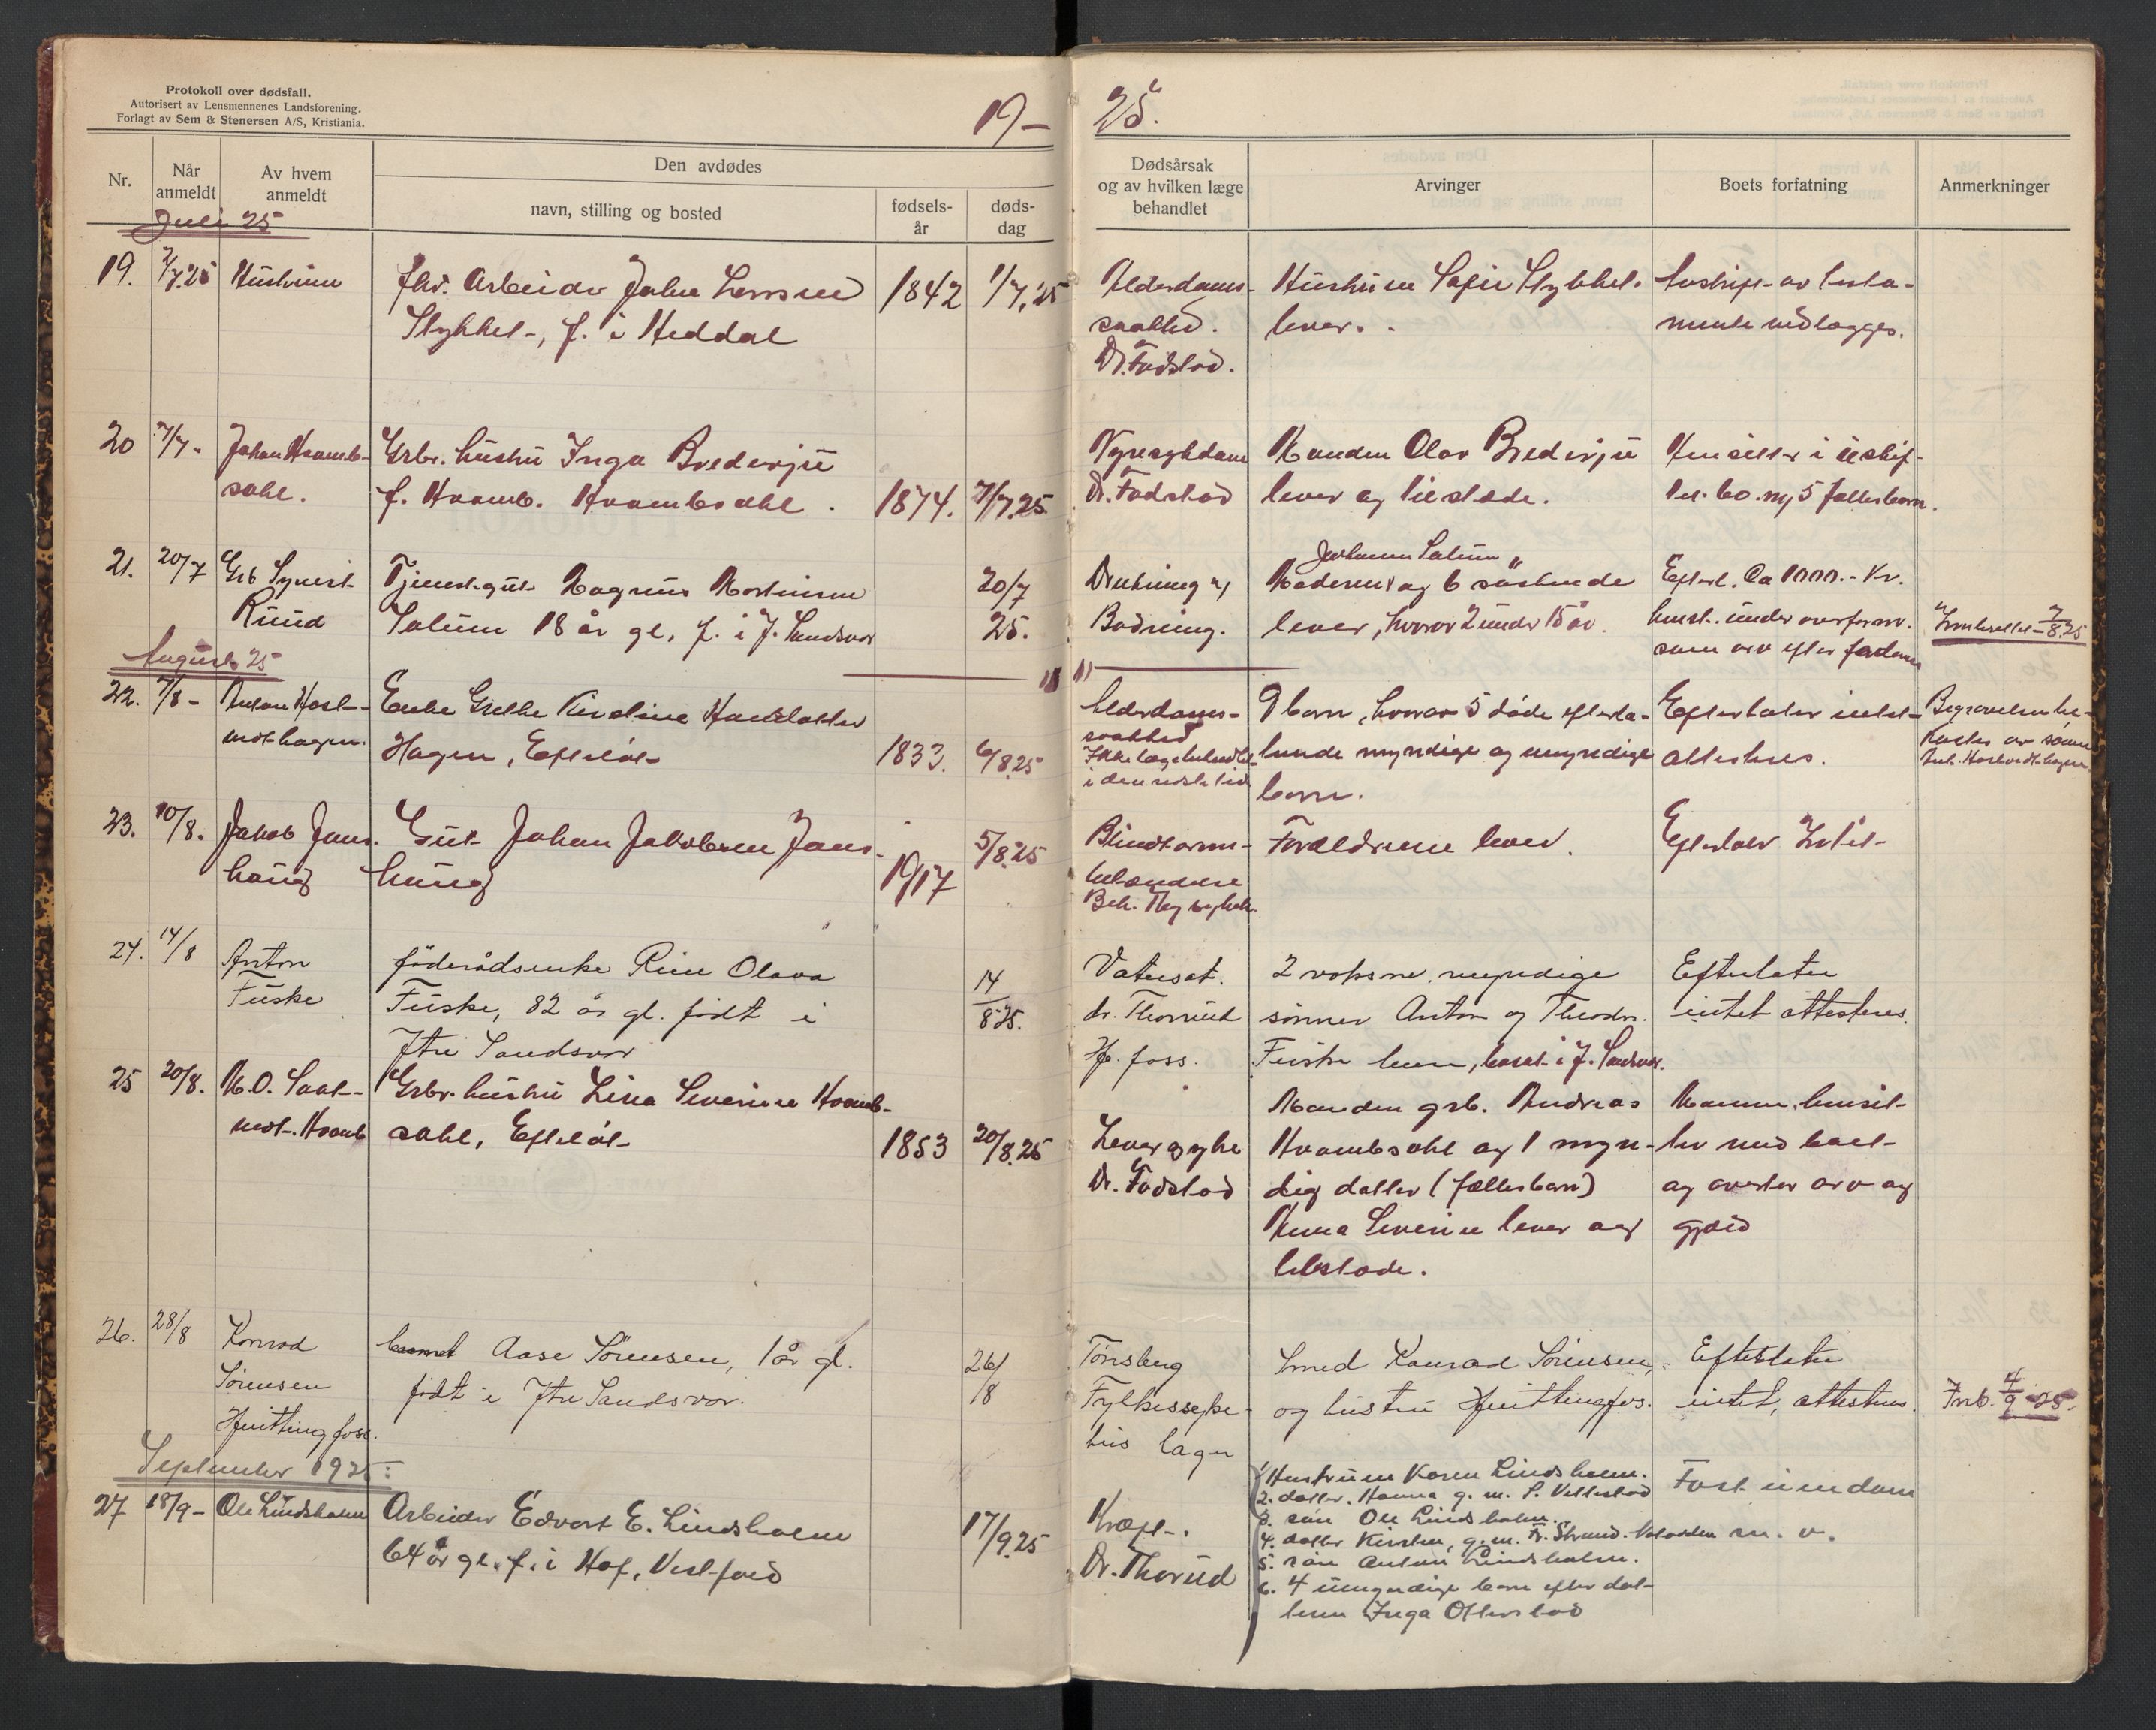 Protokoll over dødsfall.
Autorisert av Lensmennenes Landsforening.
Forlagt av Sem & Stenersen A/S, Kristiania.
19-
25.
Nr.
Når anmeldt
Av hvem anmeldt
Den avdødes
navn, stilling og bosted
fødsels-år
døds-dag
Dødsårsak og av hvilken læge behandlet
Arvinger
Boets forfatning
Anmerkninger
Juli 25
19. 2/7.25 Hustruen
fhv. Arbeider John Larsen
Stykket-, f. i Heddal
1842 1/7.25
Alderdoms-
svakhed.
Dr. Fodstad.
Hustruen Sofie Stykket.
lever.
Avskrift av testa-
mente vedlægges.
20 7/7. Johan Hvamb-
sahl.
Grbr. hustru Inga Brederju
f. Hvamb. Hvambsahl.
1874. 7/7.25
Nyresykdom
Dr. Fodstad
Manden Olav Brederju
lever og tilstede.
Hensitter i uskif-
tet bo m/ 5 fællesbarn.
21. 20/7 Grb Synert
Ruud
Tjenestegut Magnus Martinsen
Solum 18 år gl, f. i Y. Sandsvær
20/7
25.
Drukning u/
Badning.
Johanne Solum
Moderen og 6 søskende
lever, hvorav 2 under 15 år.
Efterl. Ca 1000.- Kr.
innest. under overform.
som arv efter faderen
Innberettet 7/8.25
August 25
22. 7/8 - Anton Host-
vedthagen.
Enke Grethe Kirstine Hansdatter
Hagen, Efteløt-
1833. 6/8.25
Alderdoms-
svakhed
Ikke lægebehandlet
i den siste tid
9 barn, hvorav 5 døde efterla-
tende myndige og umyndige
barn.
Efterlater intet-
attesteres.
Begravelsen be-
kostes av sønnen
Ant. Hostvedthagen.
23. 10/8. Jakob Jans-
haug
Gut Johan Jakobsen Jans-
haug
1917
5/8.25
Blindtarms-
betændelse
Beh. Kbg sykeh.
Forældrene lever.
Efterlater Intet-
24. 14/8 Anton
Fuske
føderådsenke Rine Olava
Fuske, 82 år gl. født i
Ytre Sandsvær
14
8 25.
Vatersot.
dr. Thorrud
Hv. foss.
2 voksne, myndige
sønner Anton og Theodor
Fuske lever, bosat i Y. Sandsvær.
Efterlater
intet attesteres.
25 20/8. M.O. Saat-
vedt. Hvamb
Grbr. hustru Lina Severine Hvamb-
sahl, Efteløt-
1853 20/8.25
Leversyke
Dr. Fodstad
Manden grb. Andreas
Hvambsahl og 1 myn-
dig datter (fællesbarn)
Anna Severine lever og
tilstede.
Mannen hensit-
ter med boet-
og overtar arv og
gjæld
26. 28/8 Konrad
Sørensen
Hvittingfoss.
barnet Aase Sørensen, 1 år gl.
født i Ytre Sandsvær.
26/
8
Tønsberg
Fylkessyke-
hus
Smed Konrad Sørensen,
og hustru Hvittingfos.
Efterlater
intet, attesteres.
Innb. 4/9 25.
September 1925:
27 18/9 - Ole Lindsholm
Arbeider Edvart E. Lindsholm
64 år gl. f. i Hof, Vestfold
17/9.25
Kræft-.
Dr. Thorud
1 Hustruen Karen Lindsholm.
2. datter. Hanna g. m. P. Vettestad
3. søn Ole Lindsholm.
4. datter Kirsten, g. m. Fr. Strand.
5. søn Anton Lindsholm.
6. 4 umyndige barn efter dat-
teren Inga Ollerstad
Fast eiendom
m. v.